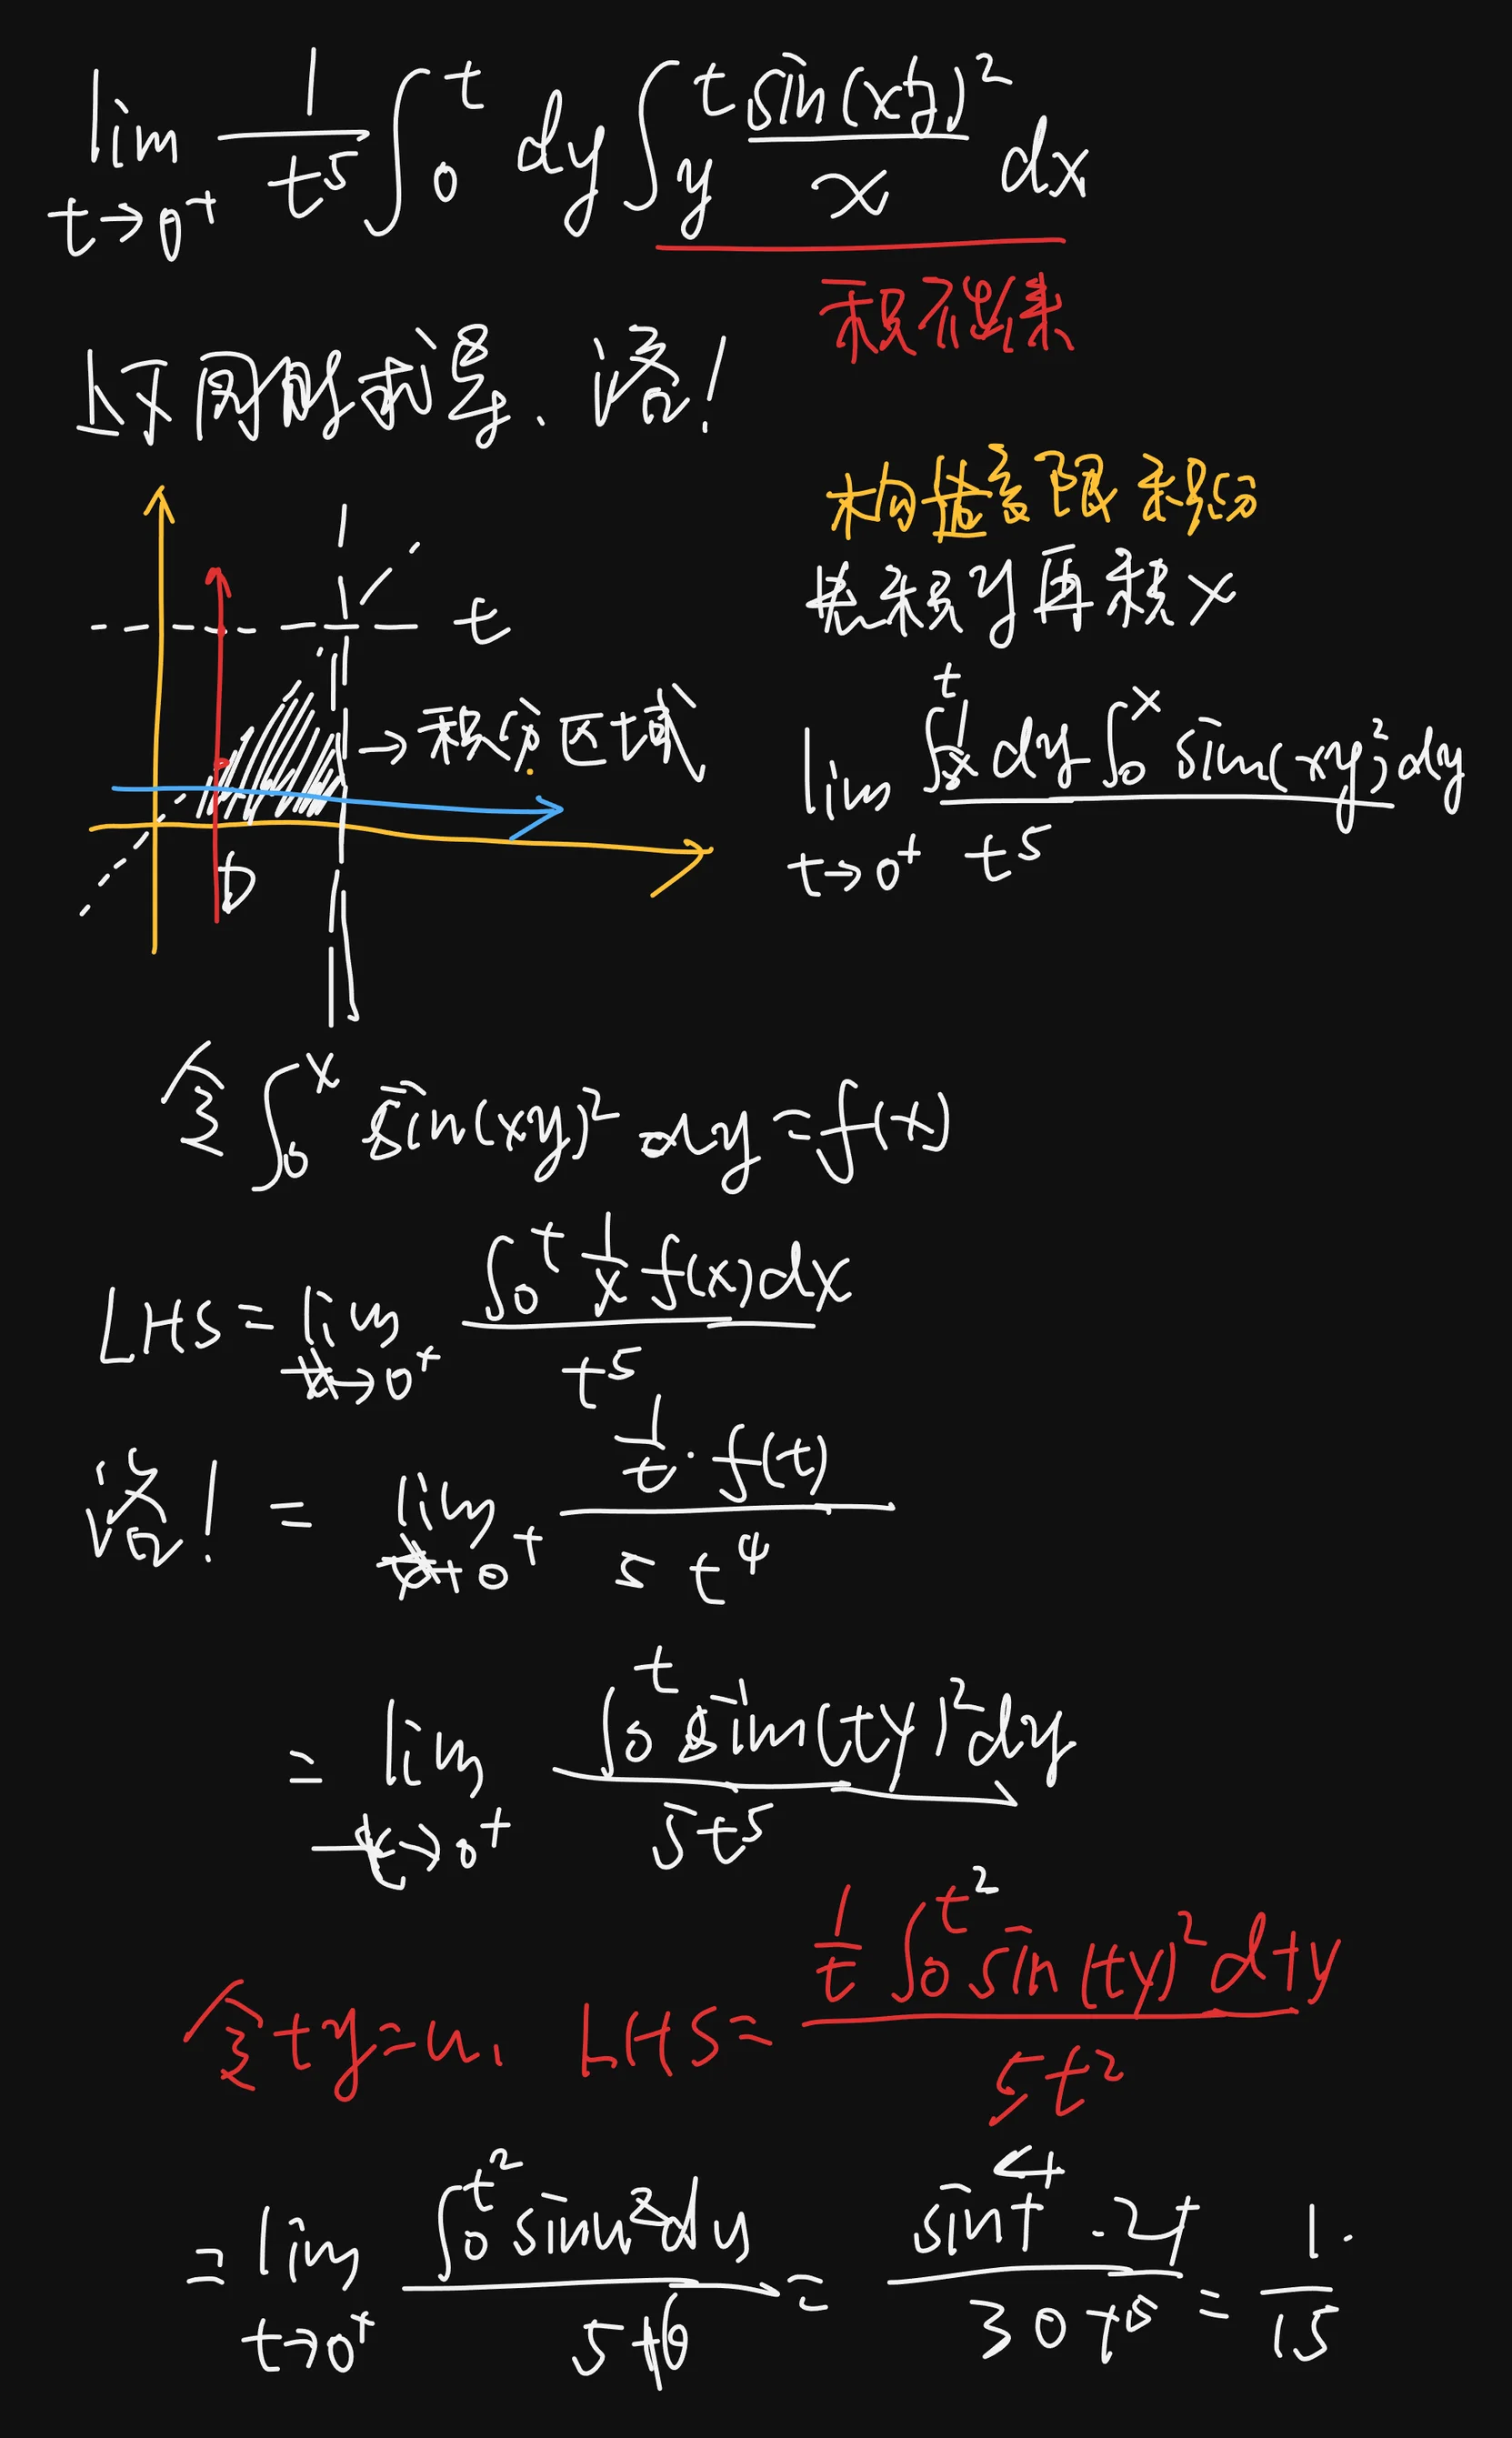 lim t→0⁺ 1/t⁵ ∫₀^t dy ∫_y^t sin(xy)²/x dx
积不出来
上下同时求导.洛!
构造变限积分
先积y再积x
t
→积分区域
D
lim t→0⁺ ∫^t 1/x dy ∫₀^x sin(xy)² dy / t⁵
令 ∫₀^x sin(xy)² dy = f(x)
LHS = lim t→0⁺ ∫₀^t 1/x f(x)dx / t⁵
洛! = lim t→0⁺ 1/t · f(t) / 5t⁴
= lim t→0⁺ ∫₀^t sin(ty)² dy / 5t⁵
令ty=u, LHS= 1/t ∫₀^t² sin(ty)² dty / 5t²
= lim t→0⁺ ∫₀^t² sinu² du / 5t⁶ = sint⁴·2t / 30t⁵ = 1/15.